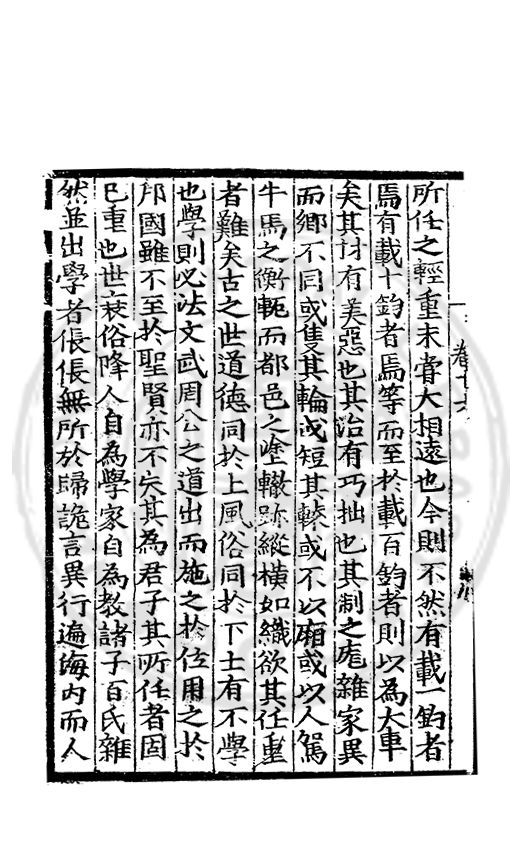 所任之輕重未嘗大相遠也今則不然有載一鈞者
焉有載十鈞者焉等而至於載百鈞者則以為大車
矣其材有美惡也其治有巧拙也其制之庬雜家異
而鄉不同或隻其輪或短其轅或不以廂或以人駕
牛馬之衡軛而都邑之塗轍跡縱橫如織欲其任重
者難矣古之世道德同於上風俗同於下士有不學
也學則必法文武周公之道出而施之於位用之於
邦國雖不至於聖賢亦不失其為君子其所任者固
已重也世衰俗降人自為學家自為教諸子百氏雜
然並出學者倀倀無所於歸詭言異行遍海內而人
卷十六